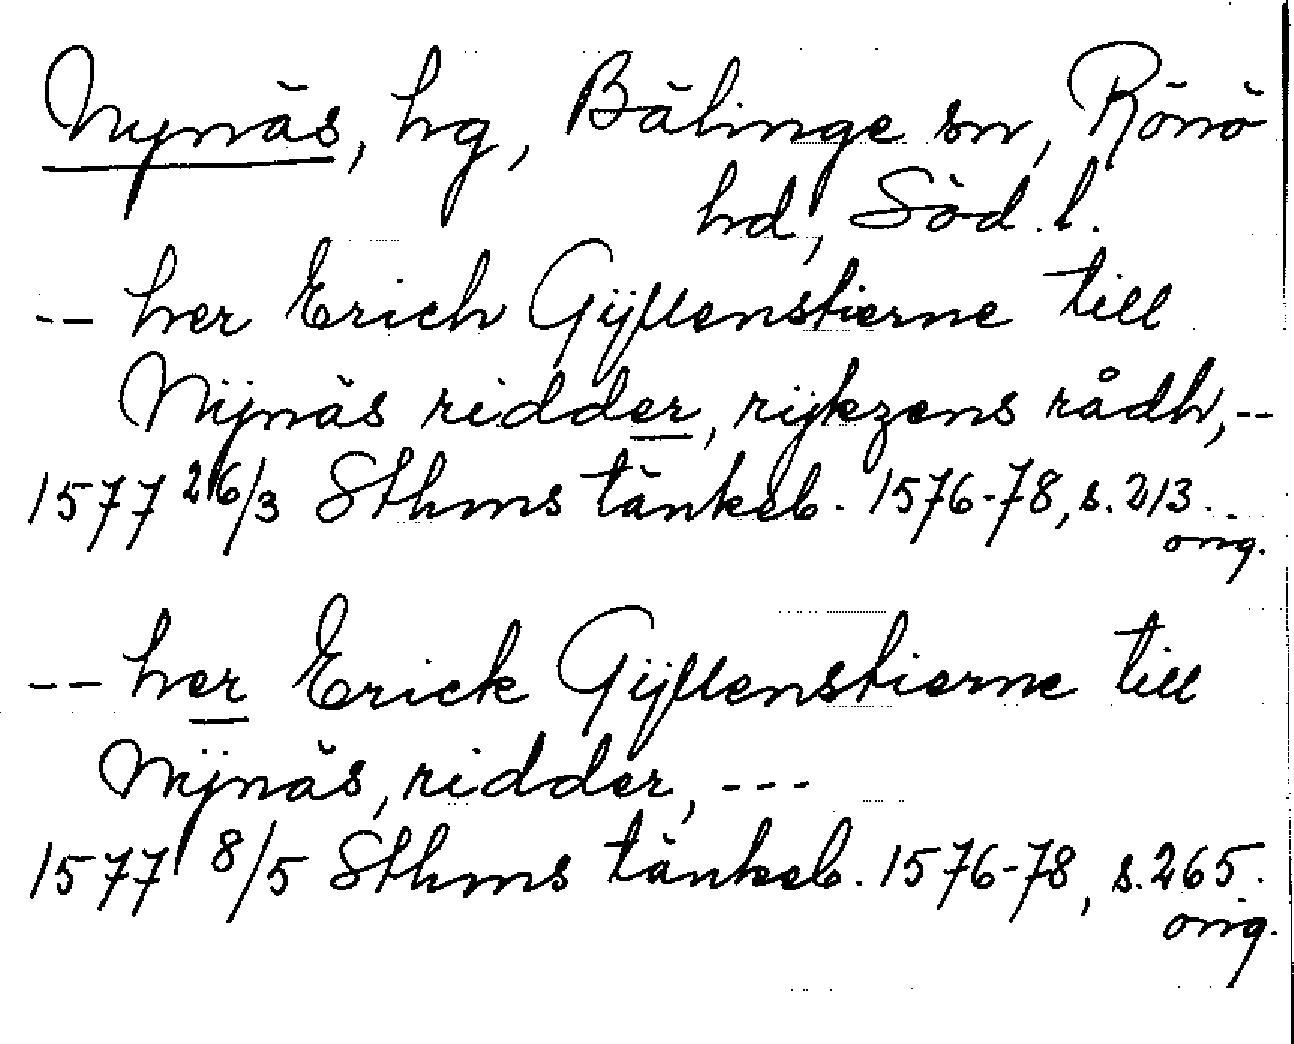 Nynäs, hg, Bälinge sn, Rönö
hd, Söd. l.
-- her Erich Gÿllenstierne till
Nÿnäs ridder, rijkzens rådh, --
1577 26/3 Sthms tänkeb. 1576-78, s. 213.
orig.
-- her Erick Gÿllenstierne till
Nÿnäs, ridder, ---
1577 8/5 Sthms tänkeb. 1576-78, s. 265.
orig.